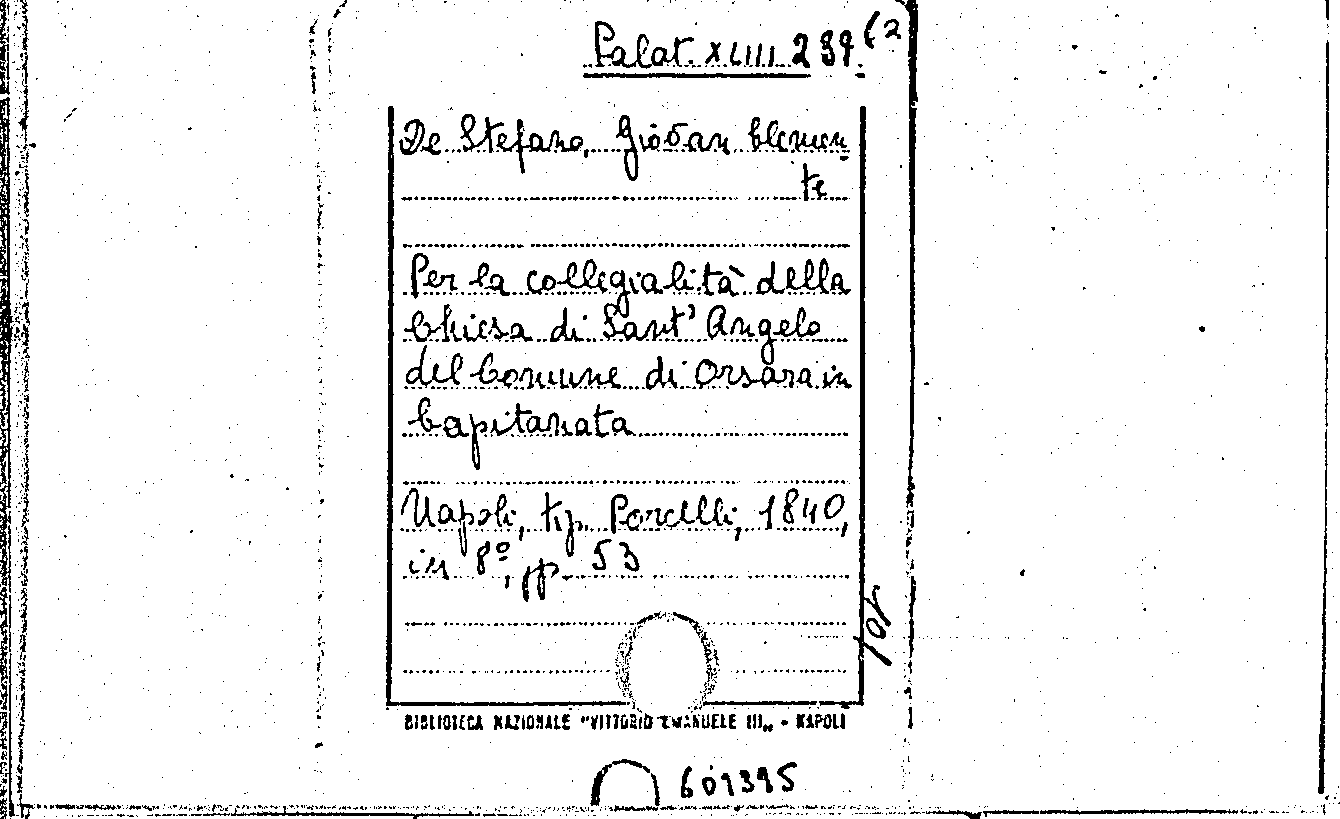 Palat. XLIII 239 (2
De Stefano, Giovan Clemen-
te
Per la collegialità della
Chiesa di Sant' Angelo
del Comune di Orsara in
Capitanata
Napoli, tip. Porcelli, 1840,
in 8º, pp. 53
BIBLIOTECA NAZIONALE "VITTORIO EMANUELE III„ - NAPOLI
601395